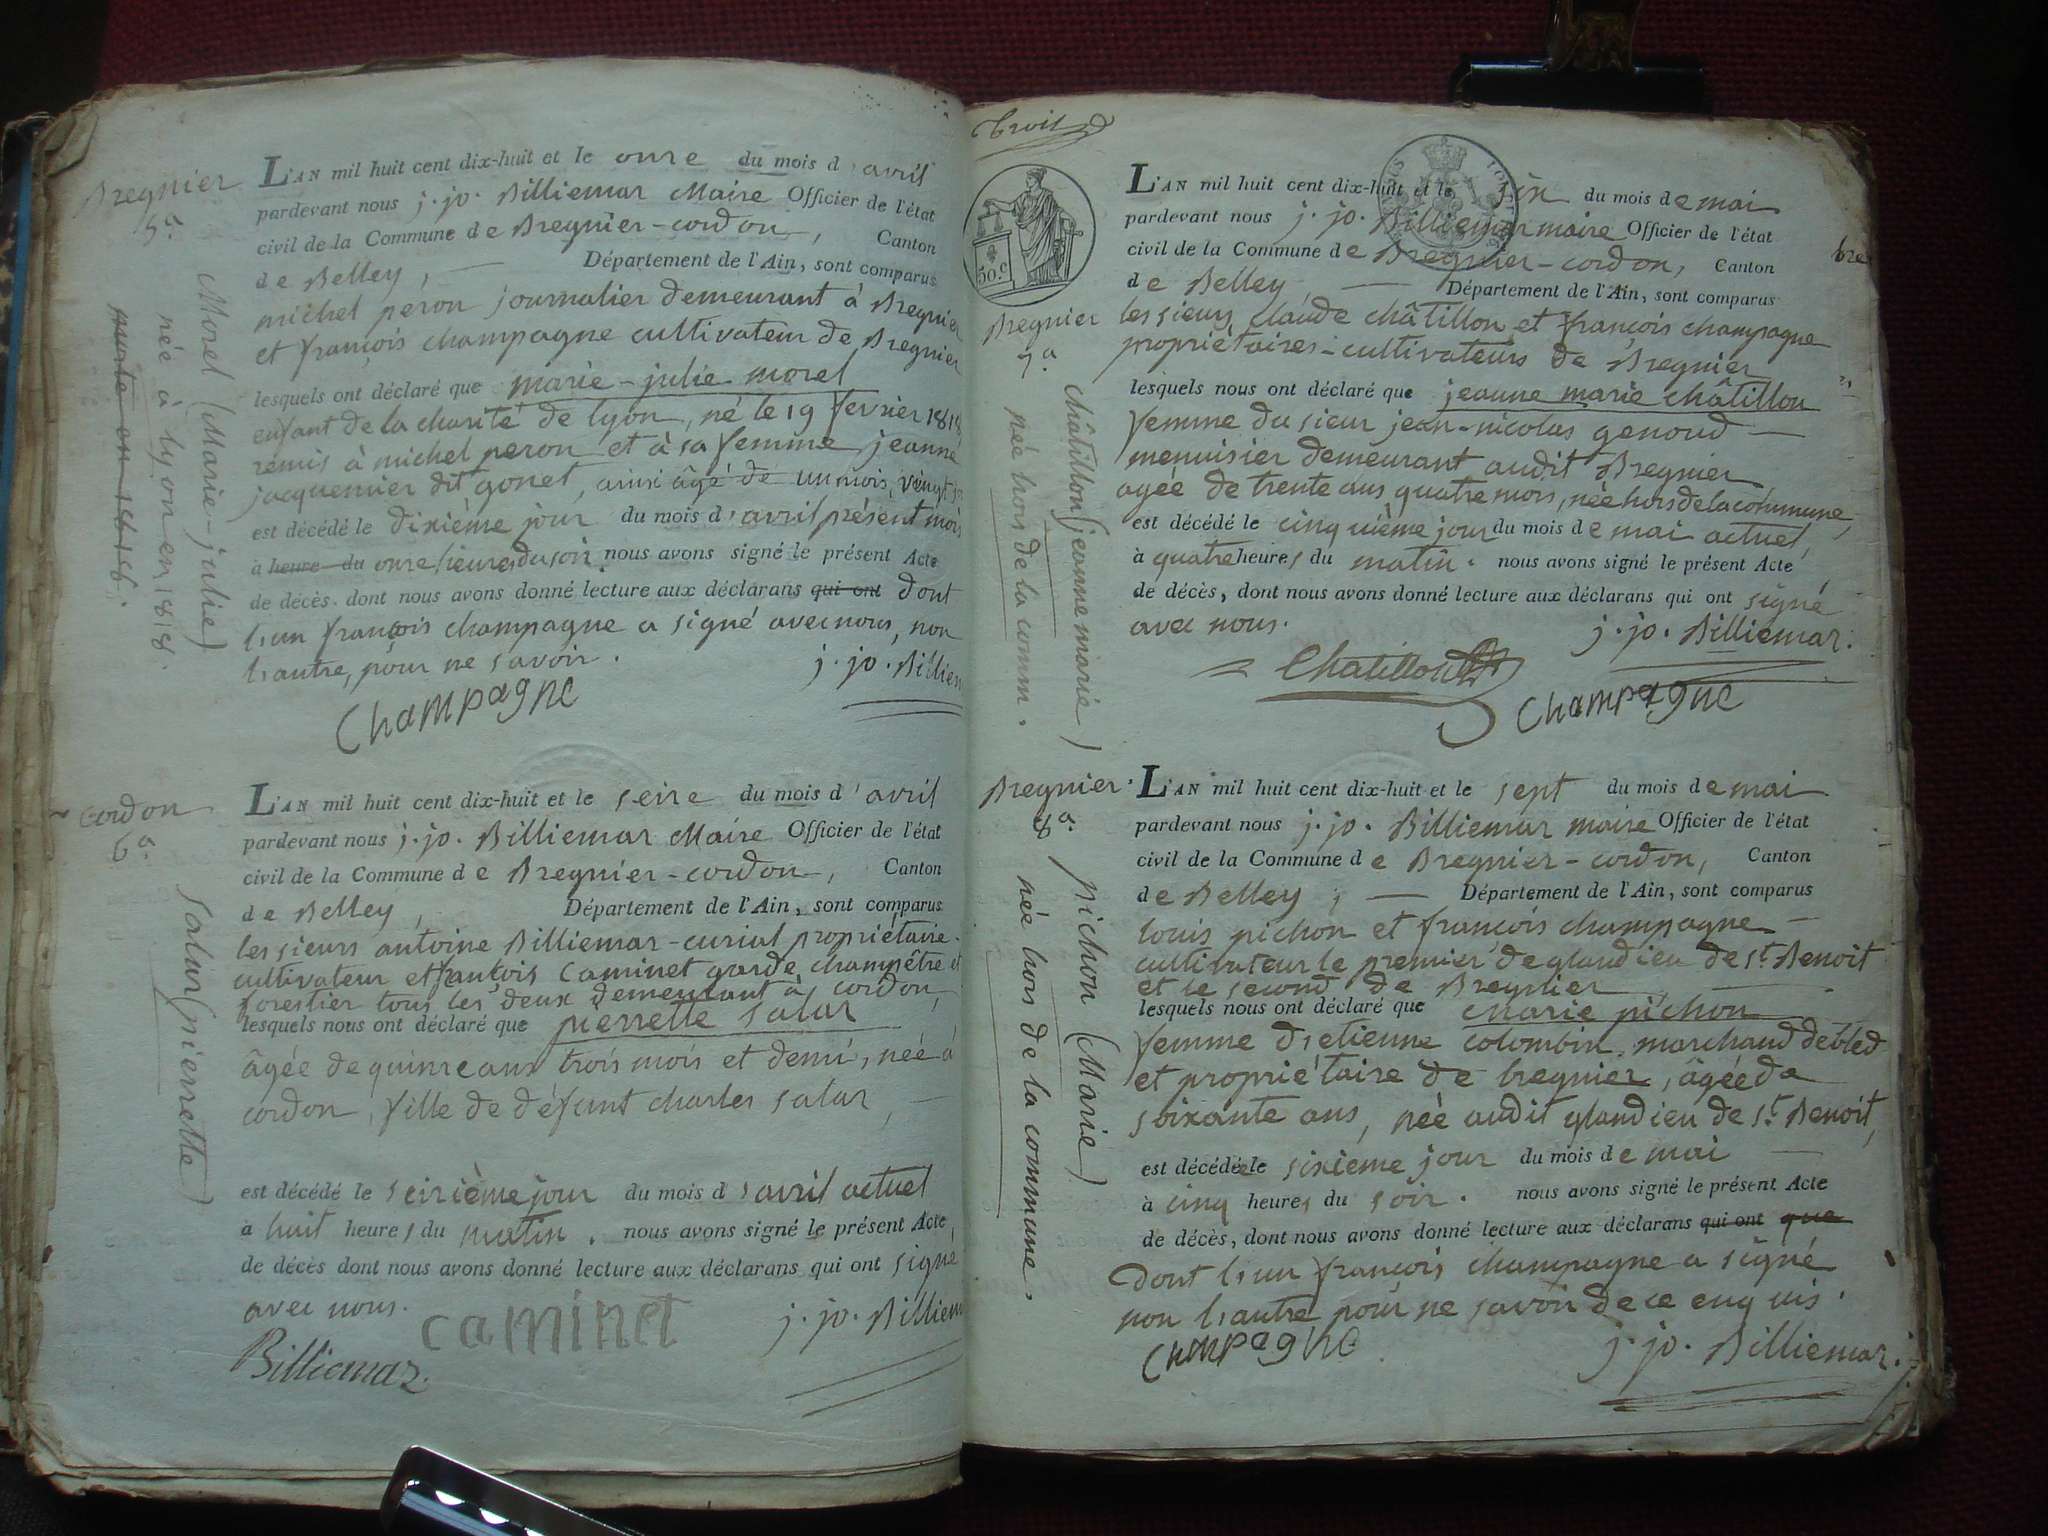 Bregnier
5ª.
Morel (Marie-julie)
née à lyon en 1818.
morte en 1818.
L'AN mil huit cent dix-huit et le onze du mois d'avril
pardevant nous j. jo. Billiemaz Maire Officier de l'état
civil de la Commune de Bregnier-cordon, Canton
de Belley, — Département de l'Ain, sont comparus
michel peron journalier demeurant à Bregnier
et françois champagne cultivateur de Bregnier
lesquels ont déclaré que marie-julie morel
enfant de la charité de lyon, né le 19 fevrier 1818
remis à michel peron et à sa femme jeanne
jacquemier dit gonet, ainsi âgé de un mois, vingt
est décédé le dixième jour du mois d'avril présent mois
à heure du onze heures du soir, nous avons signé le présent Acte
de décès. dont nous avons donné lecture aux déclarans qui ont dont
l'un françois champagne a signé avec nous, non
l'autre, pour ne savoir.
j. jo. Billiem
Champagne
Cordon
6ª.
Salar (pierrette)
L'AN mil huit cent dix-huit et le seize du mois d'avril
pardevant nous j. jo. Billiemaz Maire Officier de l'état
civil de la Commune de Bregnier-cordon, Canton
de Belley, Département de l'Ain, sont comparus
les sieurs antoine Billiemaz-curial propriétaire-
cultivateur et françois Caminet garde champêtre et
forestier tous les deux demeurant à cordon,
lesquels nous ont déclaré que pierrette salar
âgée de quinze ans trois mois et demi, née à
cordon, fille de défunt charles salar,
est décédé le seizième jour du mois d'avril actuel
à huit heures du matin. nous avons signé le présent Acte
de décès dont nous avons donné lecture aux déclarans qui ont signé
avec nous.
caminet
j. jo. Billiem
Billiemaz.
trois
50.c
Bregnier
7ª.
châtillon (jeanne marie)
née hors de la comm.
L'AN mil huit cent dix-huit et le six du mois de mai
pardevant nous j. jo. Billiemaz maire Officier de l'état
civil de la Commune de Bregnier-cordon, Canton
de Belley — Département de l'Ain, sont comparus
les sieurs claude châtillon et françois champagne
propriétaires-cultivateurs de Bregnier
lesquels nous ont déclaré que jeanne marie châtillon
femme du sieur jean-nicolas genoud —
menuisier demeurant audit Bregnier,
agée de trente ans quatre mois, née hors de la commune,
est décédé le cinquième jour du mois de mai actuel,
à quatre heures du matin. nous avons signé le présent Acte
de décès, dont nous avons donné lecture aux déclarans qui ont signé
avec nous.
j. jo. Billiemaz.
Chatillon
Champagne
bre
Bregnier.
8ª.
pichon (Marie)
née hors de la commune.
L'AN mil huit cent dix-huit et le sept du mois de mai
pardevant nous j. jo. Billiemaz maire Officier de l'état
civil de la Commune de Bregnier-cordon, Canton
de Belley, — Département de l'Ain, sont comparus
louis pichon et françois champagne —
cultivateur le premier de glandieu de St. Benoit
et le second de Bregnier
lesquels nous ont déclaré que Marie pichon
femme d'etienne colombin marchand de bled
et propriétaire de bregnier, âgée de
soixante ans, née audit glandieu de St. Benoit,
est décédée le sixième jour du mois de mai —
à cinq heures du soir. nous avons signé le présent Acte
de décès, dont nous avons donné lecture aux déclarans qui ont que
dont l'un françois champagne a signé
non l'autre pour ne savoir de ce enquis.
Champagne
j. jo. Billiemaz.